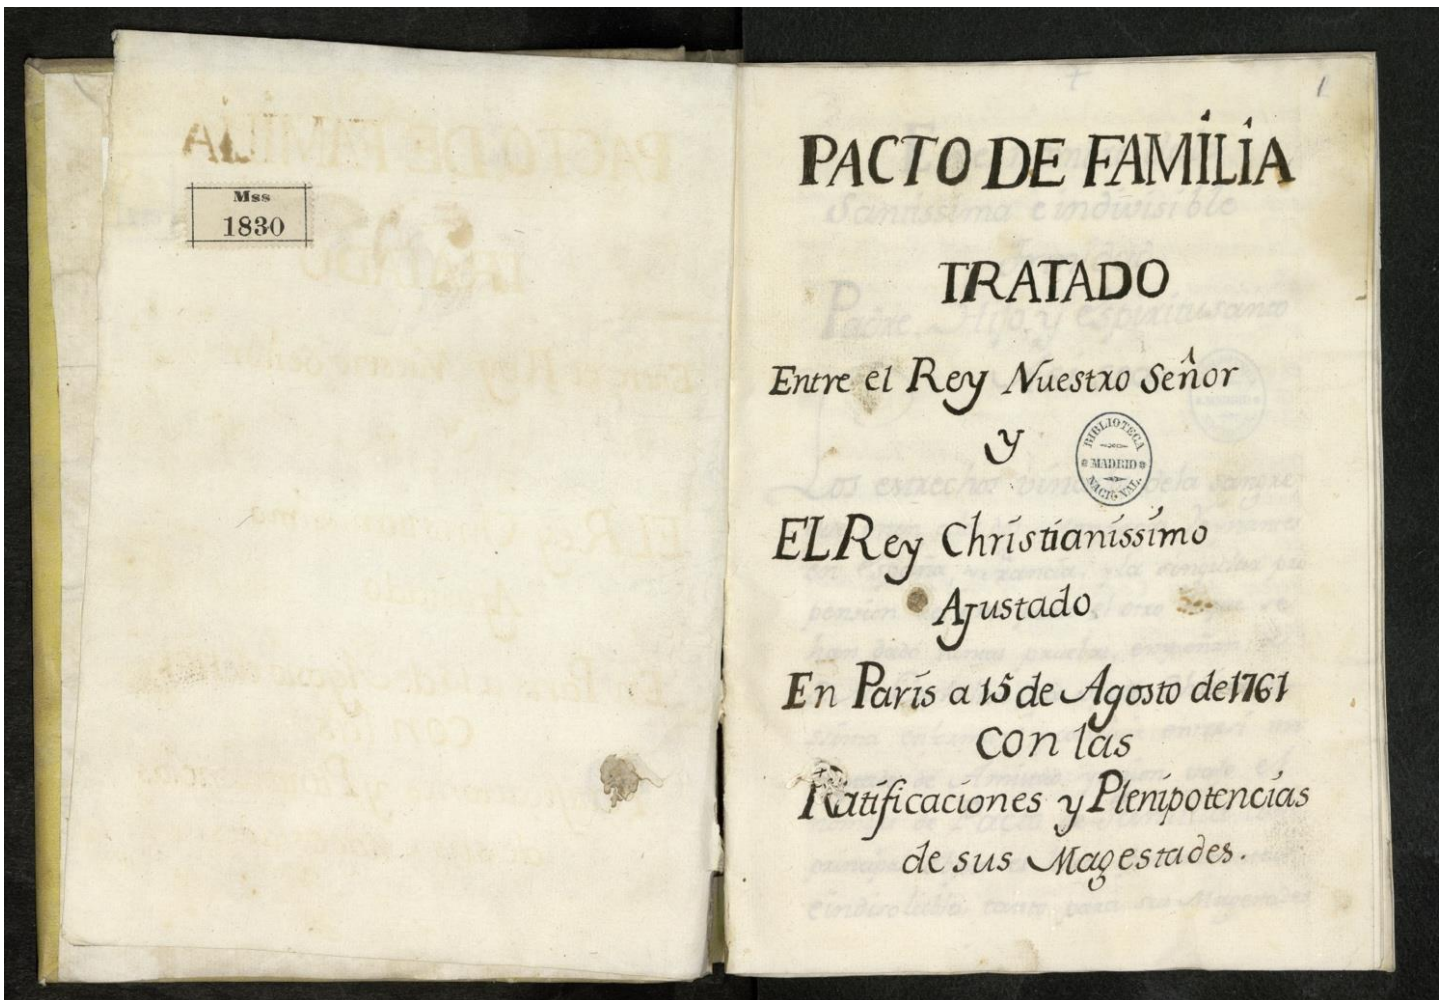 Mss
1830
1
PACTO DE FAMILIA
TRATADO
Entre el Rey Nuestro Señor
y
BIBLIOTECA
MADRID
NACIONAL
EL Rey Christianissimo
Ajustado
En Paris a 15 de Agosto de 1761
con las
Ratificaciones y Plenipotencias
de sus Magestades.